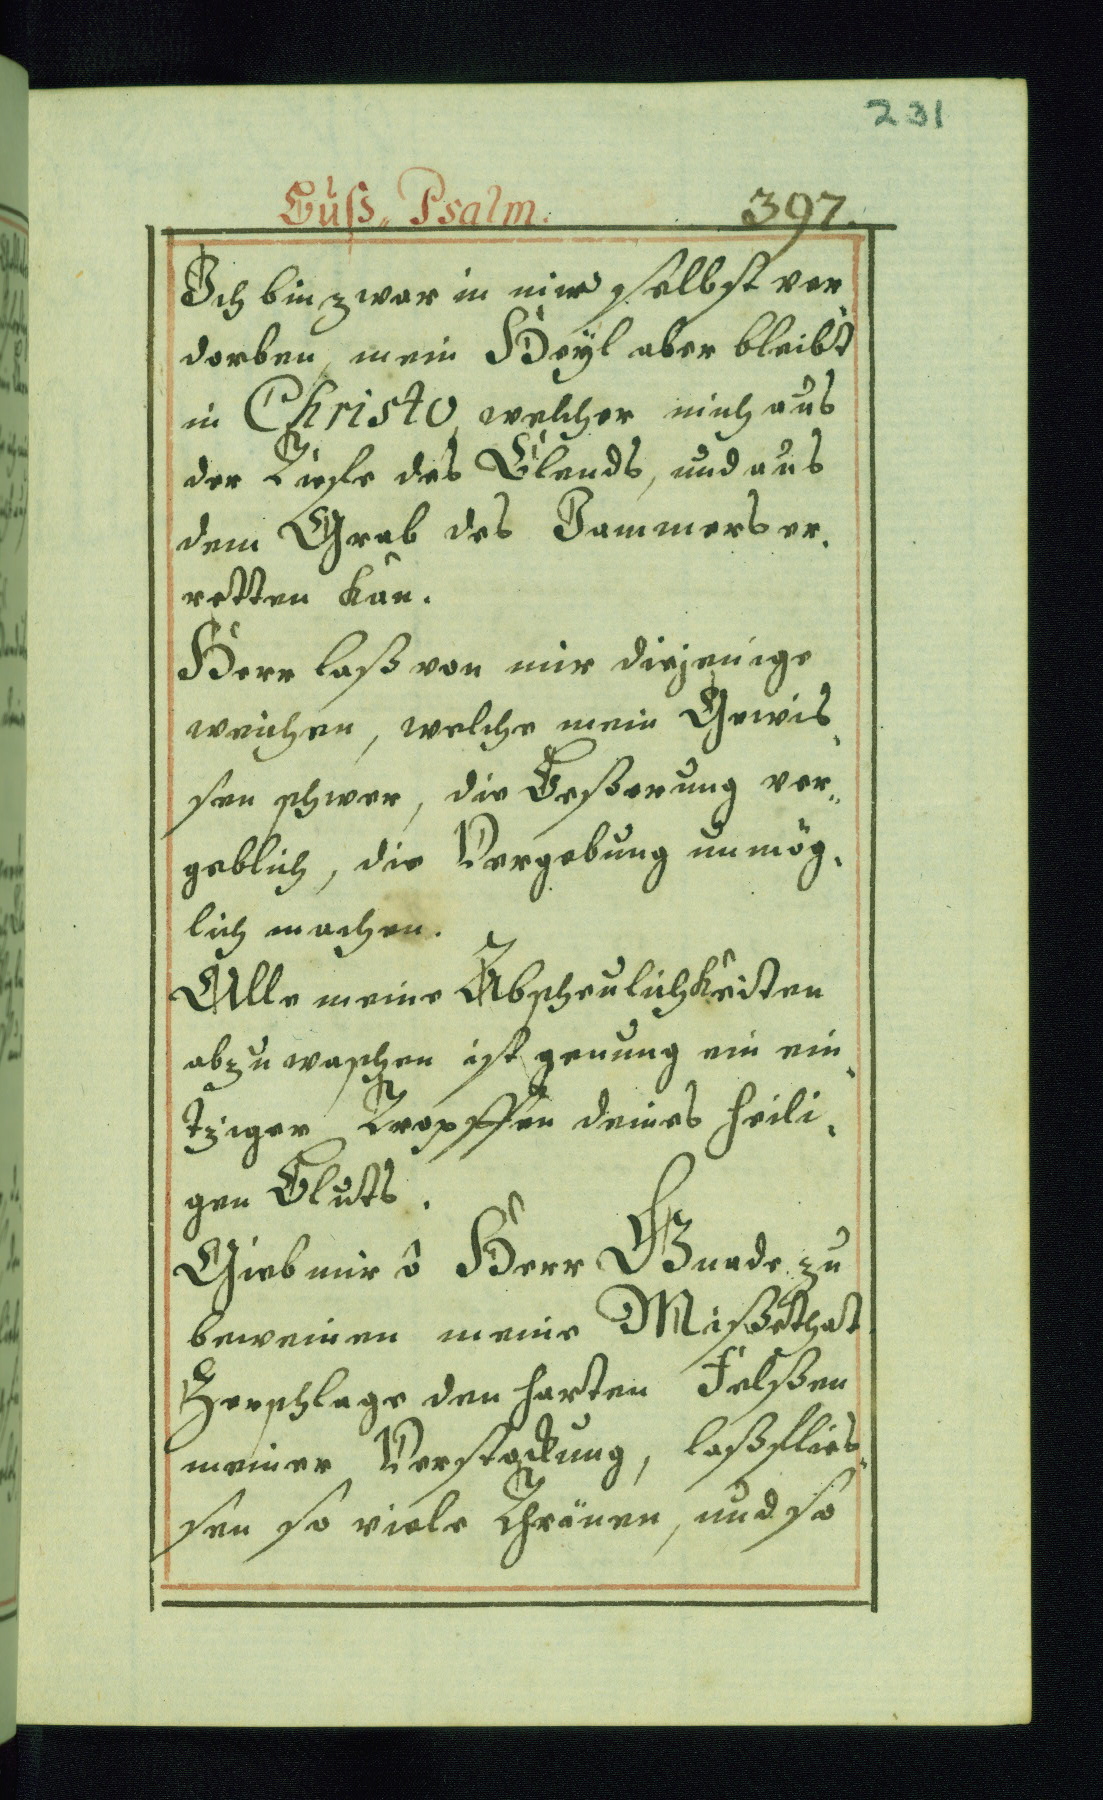 231
Buß„ Psalm. 397.
Ich bin zwar in mir selbst ver„
dorben, mein Heÿl aber bleibt
in Christo, welcher mich aus
der Tiefe des Elends, und aus
dem Grab des Jammers er„
retten kan.
Herr laß von mir diejenige
weichen, welche mein Gewis„
sen schwer, die Beßerung ver„
geblich, die Vergebung unmög„
lich machen.
Alle meine Abscheulichkeiten
abzuwaschen ist genung ein ein„
tziger Tropffen deines heili„
gen Bluts.
Gieb mir ô Herr Gnade zu
beweinen meine Mißethat
Zerschlage den harten Felßen
meiner Verstockung, laß flies„
sen so viele Thränen, und so